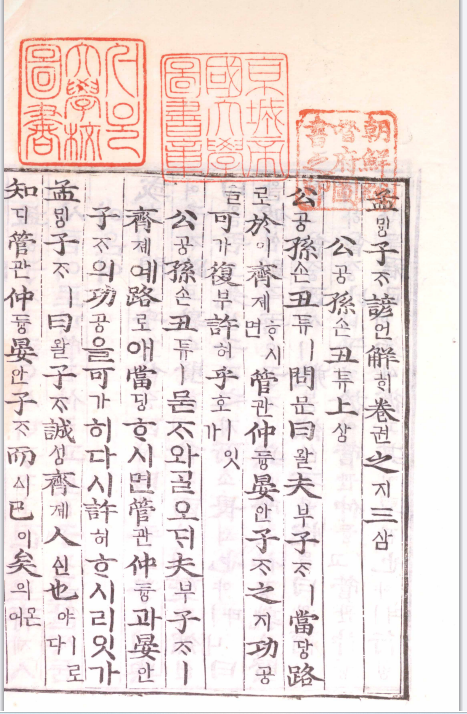 서울大學校圖書
京城帝國大學圖書章
朝鮮總督府圖書之印
孟ᄆᆡᆼ子ᄌᆞ諺언解ᄒᆡ卷권之지三삼
公공孫손丑튜上샹
公공孫손丑튜ㅣ問문曰왈夫부子ᄌᆞㅣ當당路
로於어齊졔ᄒᆞ시면管관仲듕晏안子ᄌᆞ之지功공
을可가復부許허乎호ㅣ잇가
公공孫손丑튜ㅣ묻ᄌᆞ와ᄀᆞᆯ오ᄃᆡ夫부子ᄌᆞㅣ
齊졔예路로애當당ᄒᆞ시면管관仲듕과晏안
子ᄌᆞ의功공을可가히다시許허ᄒᆞ시리잇가
孟ᄆᆡᆼ子ᄌᆞㅣ曰왈子ᄌᆞ誠셩齊졔人ᅀᅵᆫ也야ㅣ로다
知디管관仲듕晏안子ᄌᆞ而ᅀᅵ已이矣의온여